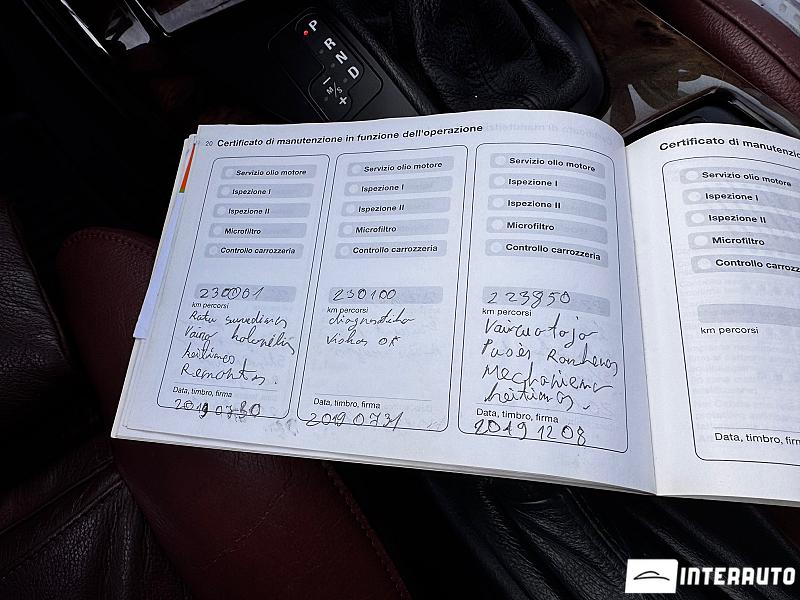 P
R
N
D
M S
I +
20 Certificato di manutenzione in funzione dell'operazione
Servizio olio motore
Ispezione I
Ispezione II
Microfiltro
Controllo carrozzeria
230001
km percorsi
Ratu suvedimas
Vairo kolonėlės
keitimas
Remontas.
Data, timbro, firma
2019 07 30
Servizio olio motore
Ispezione I
Ispezione II
Microfiltro
Controllo carrozzeria
230100
km percorsi
diagnostika
Viskas OK
Data, timbro, firma
2019 07 31
Servizio olio motore
Ispezione I
Ispezione II
Microfiltro
Controllo carrozzeria
223850
km percorsi
Vairuotojo
Pusės Rankenos
Mechanizmo
keitimas.
Data, timbro, firma
2019 12 08
Certificato di manutenzio
Servizio olio motore
Ispezione I
Ispezione II
Microfiltro
Controllo carrozz
km percorsi
Data, timbro, firm
INTERAUTO